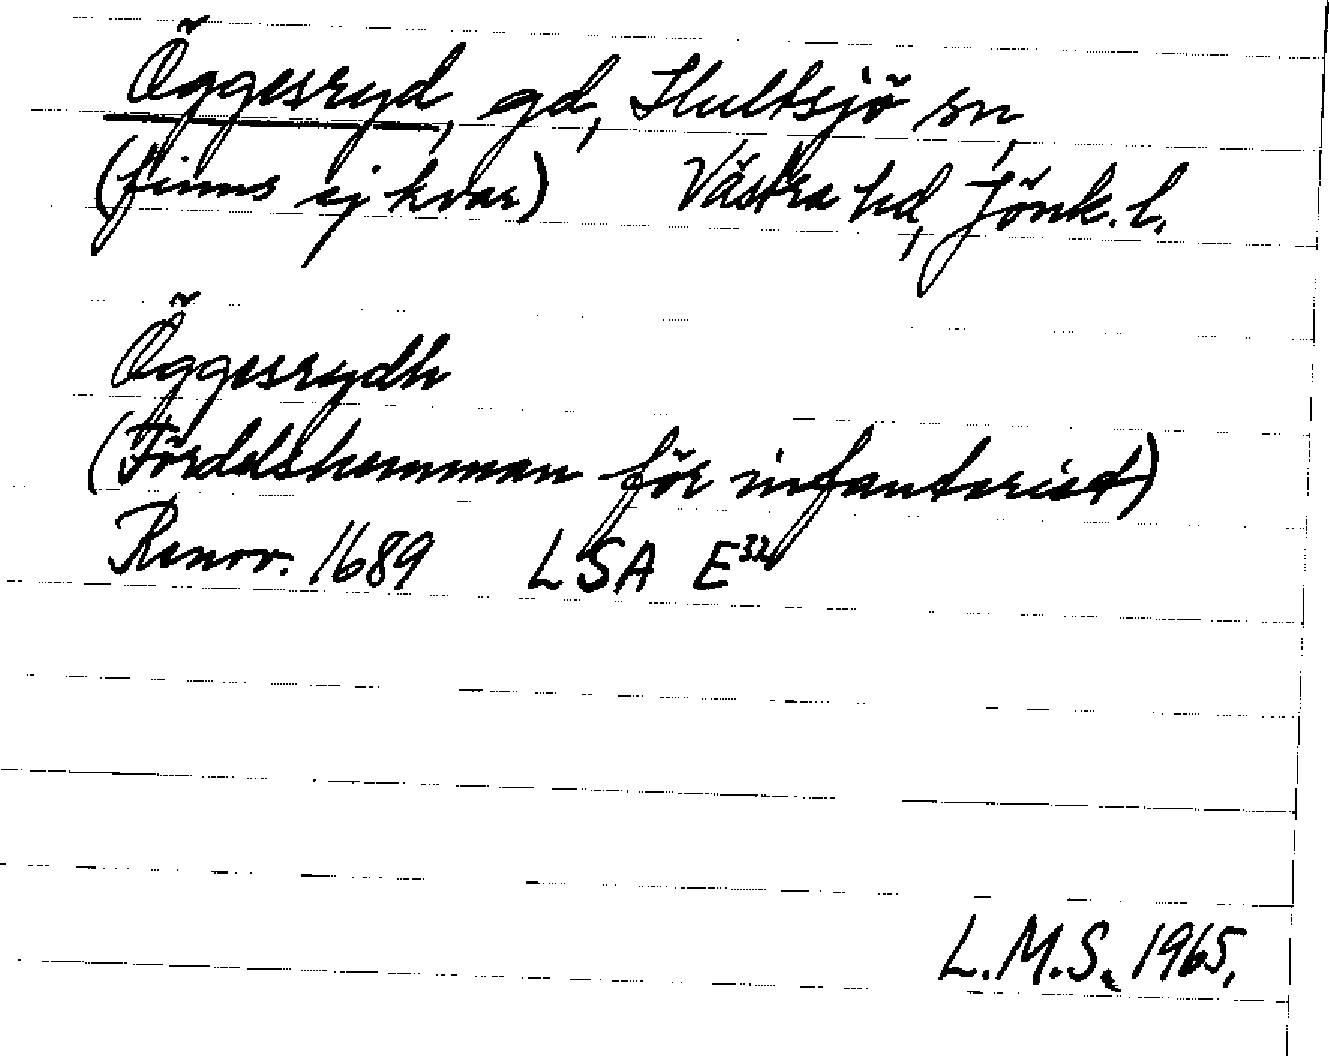 Öggesryd, gd, Hultsjö sn,
(finns ej kvar) Västra hd, Jönk. l.
Öggesrydh
(Fördelshemman för infanterist)
Renov. 1689 LSA E³²
L.M.S. 1965.